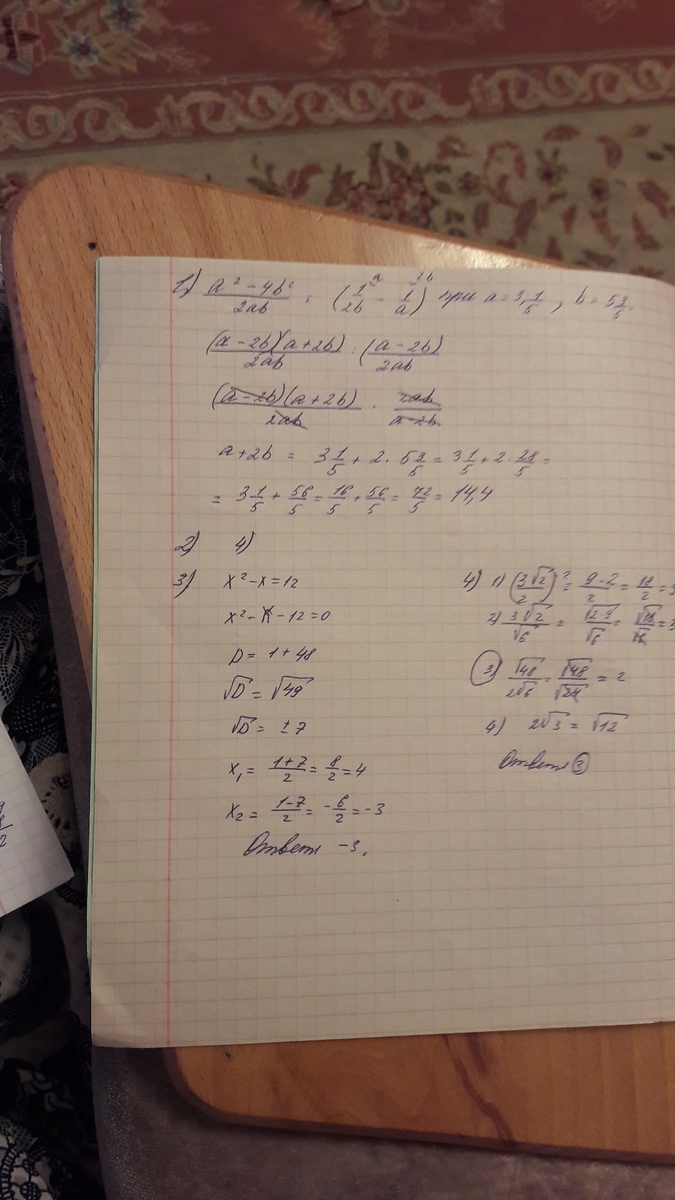 1) (a² - 4b²)/2ab : (1/2b - 1/a) при a = 3 1/5, b = 5 3/5.
(a - 2b)(a + 2b)/2ab : (a - 2b)/2ab
(a - 2b)(a + 2b)/2ab · 2ab/(a - 2b)
a + 2b = 3 1/5 + 2 · 5 3/5 = 3 1/5 + 2 · 28/5 =
= 3 1/5 + 56/5 = 16/5 + 56/5 = 72/5 = 14,4
2) 4)
3) x² - x = 12
x² - x - 12 = 0
D = 1 + 48
√D = √49
√D = ± 7
x₁ = (1+7)/2 = 8/2 = 4
x₂ = (1-7)/2 = -6/2 = -3
Ответ -3.
4) 1) (3√2/2)² = 9·2/2 = 18/2 = 9
2) 3√2/√6 = √2·9/√6 = √18/√6 = 3
3) √48/2√6 = √48/√24 = 2
4) 2√3 = √12
Ответ 3